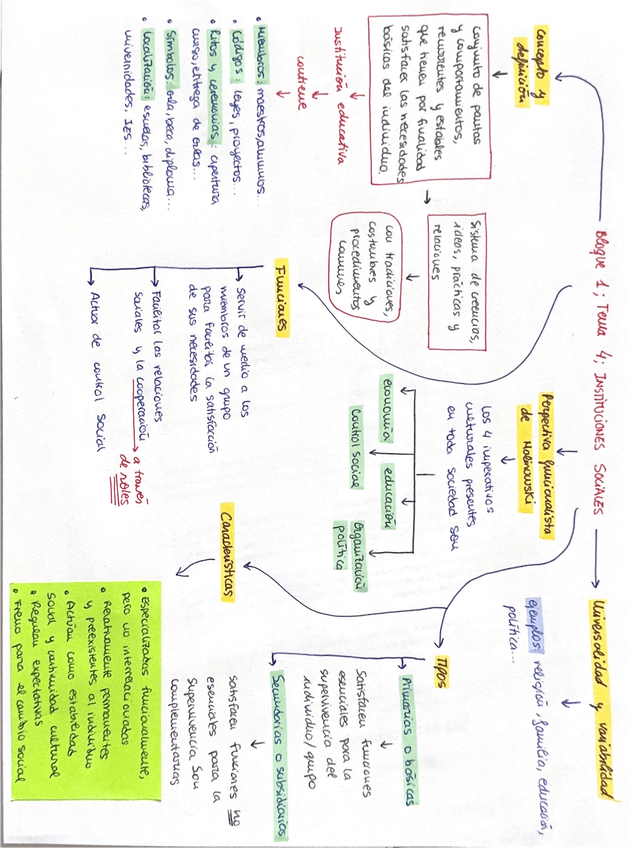 Bloque 1; Tema 4; INSTITUCIONES SOCIALES
Concepto y
definición
conjunto de pautas
y comportamientos,
recurrentes y estables
que tienen por finalidad
satisfacer las necesidades
básicas del individuo.
Sistema de creencias,
ideas, prácticas y
relaciones
con tradiciones,
costumbres y
procedimientos
comunes
Institución educativa
contiene
• Miembros: maestros, alumnos...
• Códigos: leyes, proyectos...
• Ritos y ceremonias: apertura
curso, entrega de orlas...
• Símbolos: orla, beca, diploma...
• Localización: escuelas, bibliotecas,
universidades, IES...
Funciones
Servir de medio a los
miembros de un grupo
para facilitar la satisfacción
de sus necesidades
Facilitar las relaciones
sociales y la cooperación
a través
de roles
Actuar de control social
Perspectiva funcionalista
de Malinowski
Los 4 imperativos
culturales presentes
en toda sociedad son
economía
Control social
educación
Organización
política
Universalidad y variabilidad
ejemplos religión, familia, educación,
política...
Tipos
Primarias o básicas
Satisfacen funciones
esenciales para la
supervivencia del
individuo/grupo
Secundarias o subsidiarias
satisfacen funciones no
esenciales para la
supervivencia. Son
complementarias
Características
• Especializadas funcionalmente,
pero no interrelacionadas
• Relativamente permanentes
y preexistentes al individuo
• Actúan como estabilidad
social y continuidad cultural
• Regulan expectativas
• Freno para el cambio social